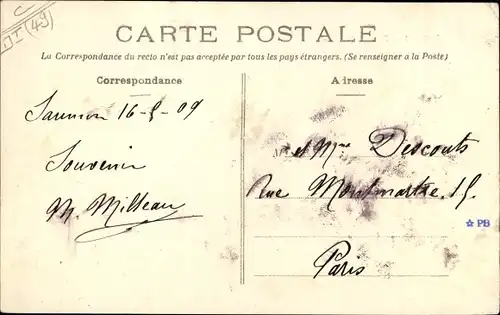 C
DI (49)
CARTE POSTALE
La Correspondance du recto n'est pas acceptée par tous les pays étrangers. (Se renseigner à la Poste)
Correspondance
Saumur 16-5-09
Souvenir
M. Milleau
Adresse
et Mme Descouts
Rue Montmartre 15
Paris
☆ PB